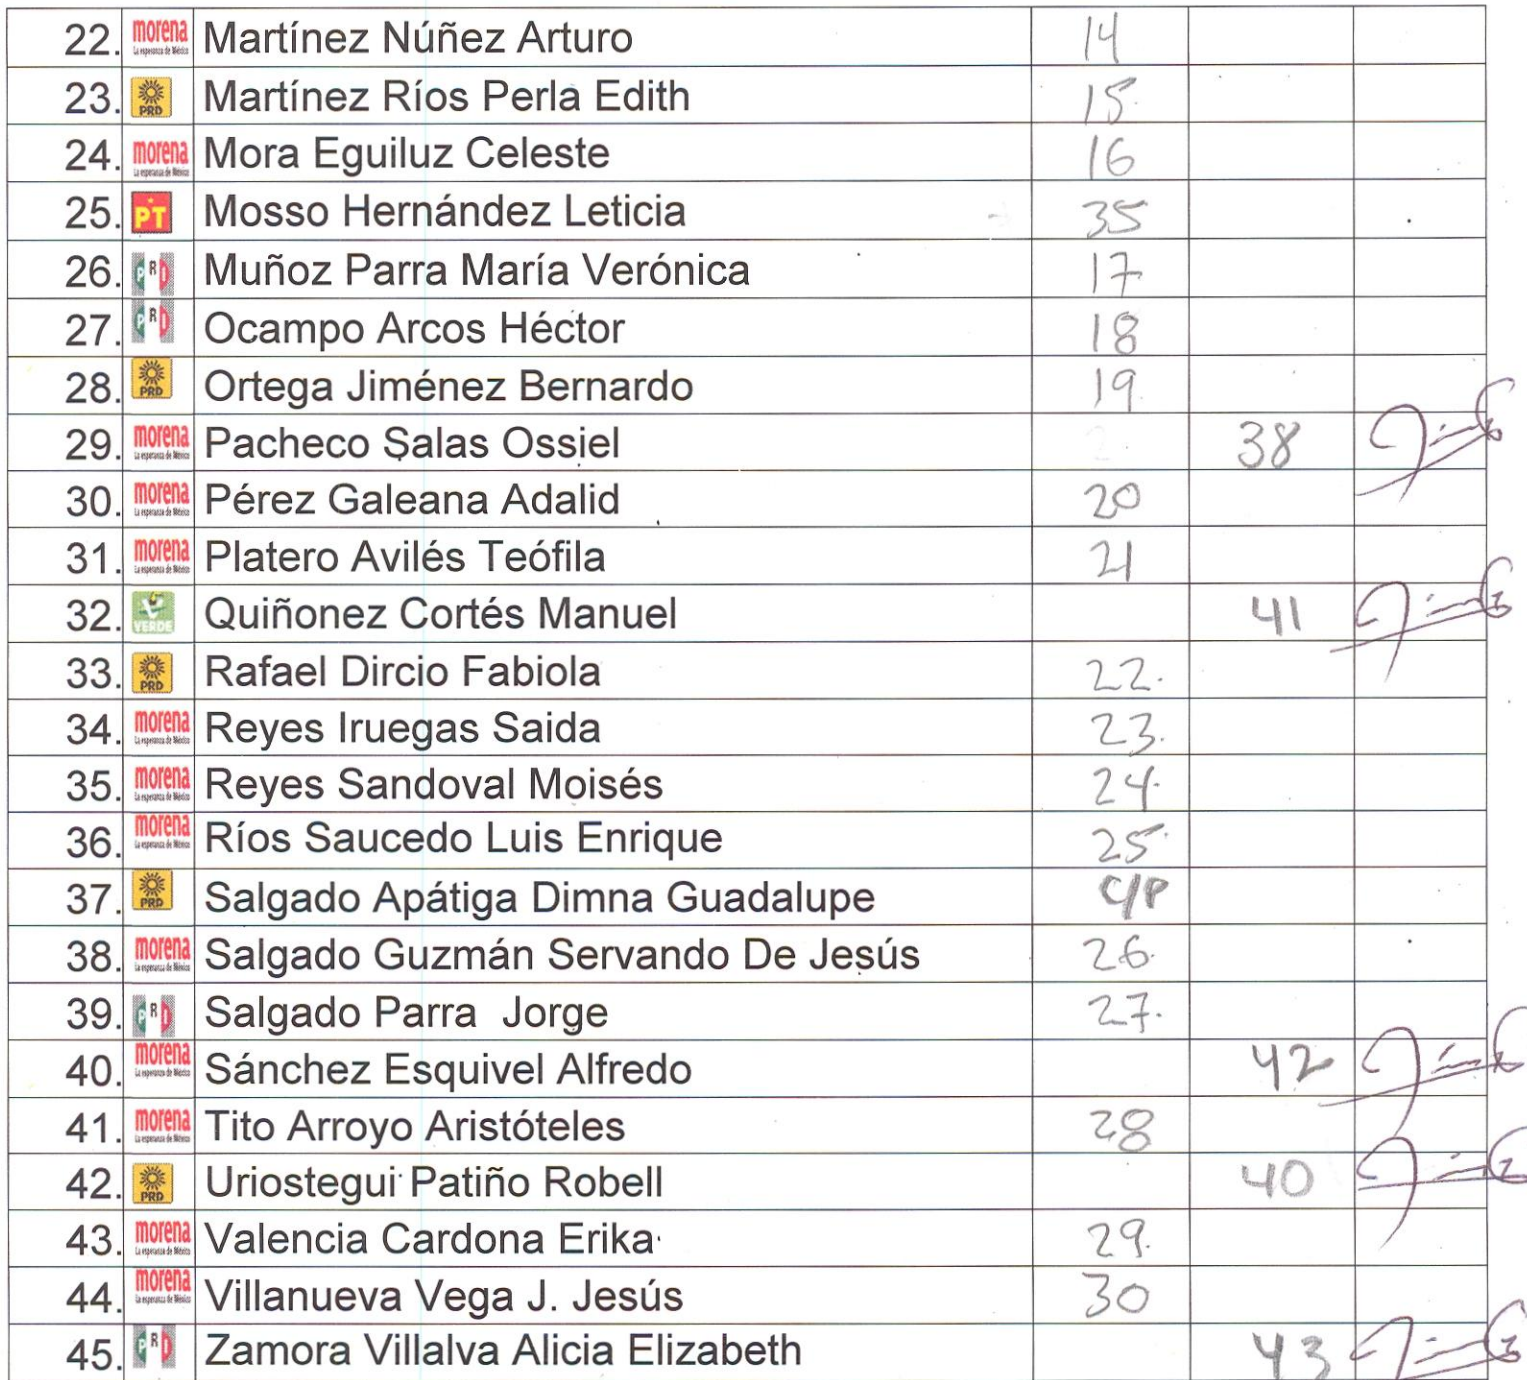 22. morena La esperanza de México Martínez Núñez Arturo 14
23. PRD Martínez Ríos Perla Edith 15
24. morena La esperanza de México Mora Eguiluz Celeste 16
25. PT Mosso Hernández Leticia 35
26. PRI Muñoz Parra María Verónica 17
27. PRI Ocampo Arcos Héctor 18
28. PRD Ortega Jiménez Bernardo 19
29. morena La esperanza de México Pacheco Salas Ossiel 38
30. morena La esperanza de México Pérez Galeana Adalid 20
31. morena La esperanza de México Platero Avilés Teófila 21
32. VERDE Quiñonez Cortés Manuel 41
33. PRD Rafael Dircio Fabiola 22.
34. morena La esperanza de México Reyes Iruegas Saida 23.
35. morena La esperanza de México Reyes Sandoval Moisés 24.
36. morena La esperanza de México Ríos Saucedo Luis Enrique 25.
37. PRD Salgado Apátiga Dimna Guadalupe C/P
38. morena La esperanza de México Salgado Guzmán Servando De Jesús 26.
39. PRI Salgado Parra Jorge 27.
40. morena La esperanza de México Sánchez Esquivel Alfredo 42
41. morena La esperanza de México Tito Arroyo Aristóteles 28
42. PRD Uriostegui Patiño Robell 40
43. morena La esperanza de México Valencia Cardona Erika 29.
44. morena La esperanza de México Villanueva Vega J. Jesús 30
45. PRI Zamora Villalva Alicia Elizabeth 43